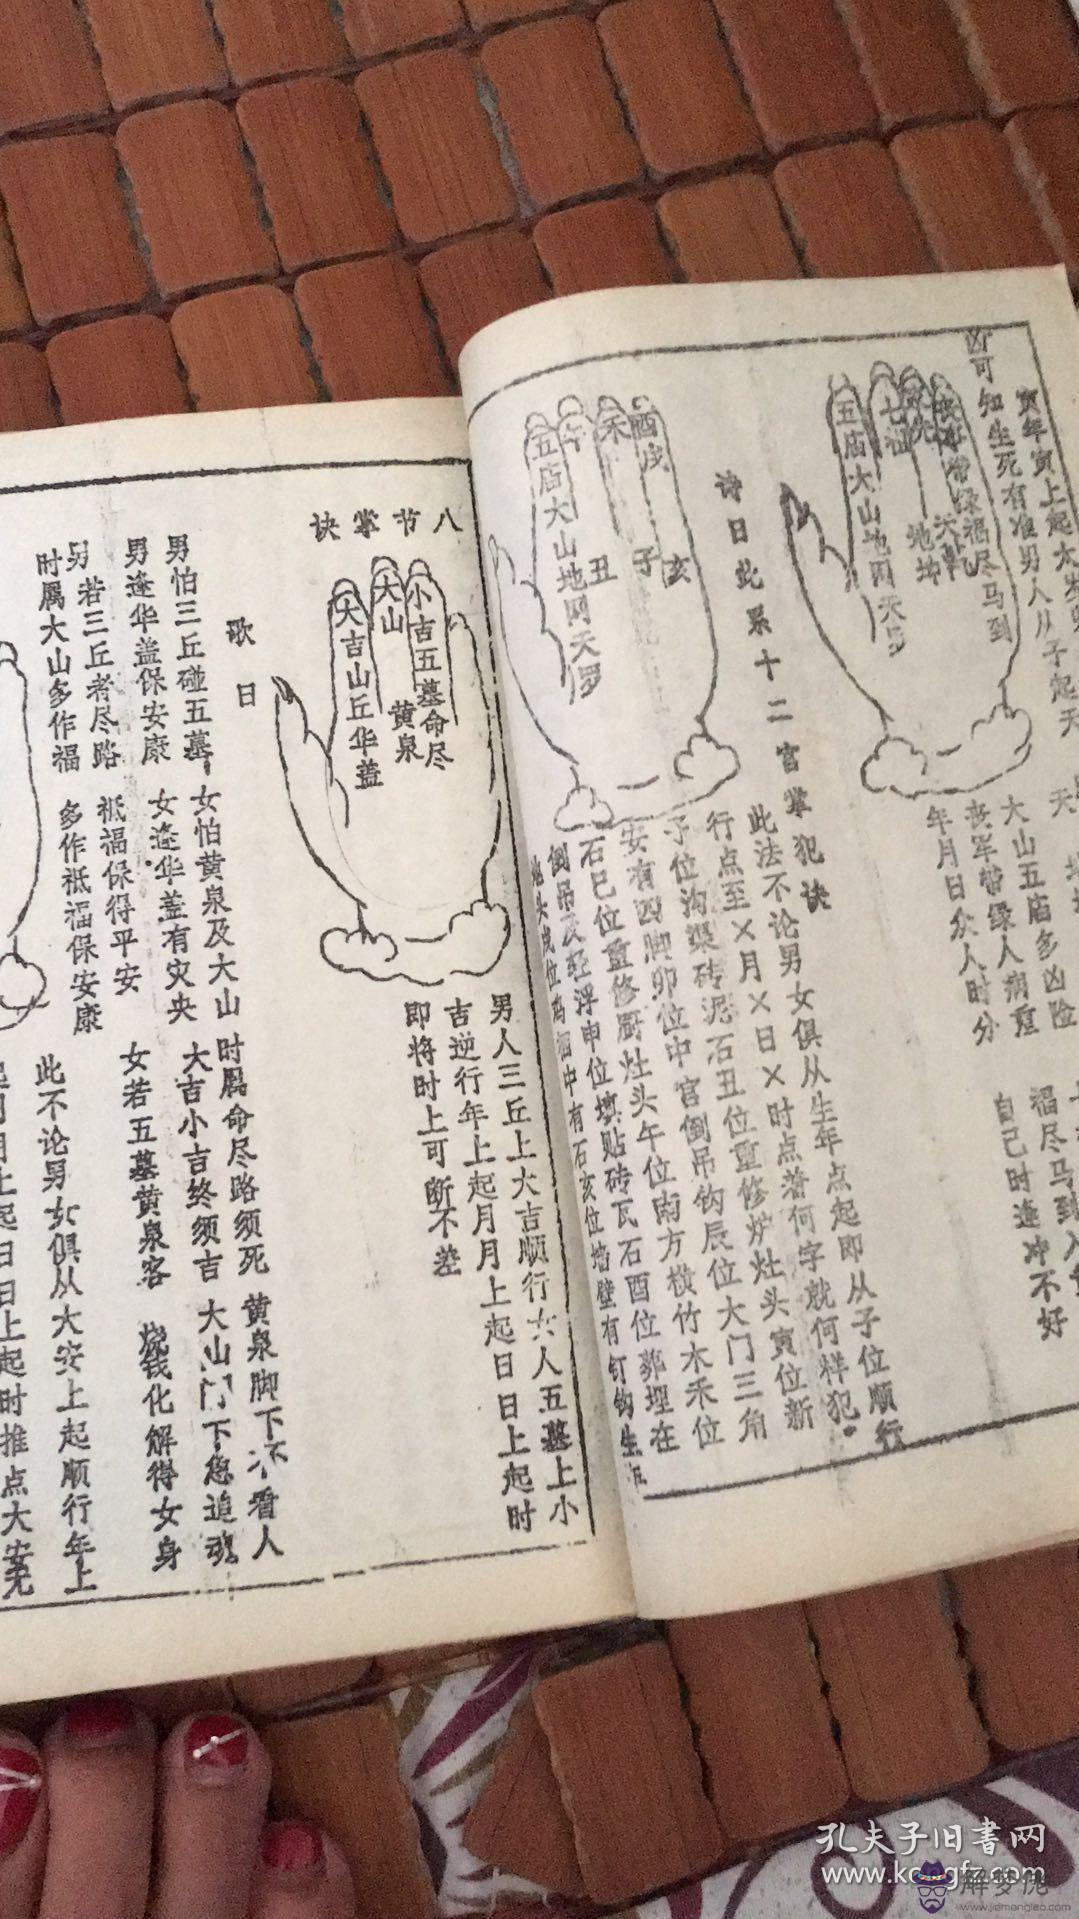 寅年寅上起太岁
凶可知生死有准男人从子起天
丧军带绿福尽马到
天乾
地坤
七汕
五庙大山地网天罗
天
大山五庙多凶险
丧军带绿人病重
年月日众人时分
福尽马到入
自己时逢冲不好
诗日此系十二宫掌犯诀
酉戌
亥
子
禾
丑
午
五庙大山地网天罗
此法不论男女俱从生年点起即从子位顺行
行点至×月×日×时点着何字就何样犯。
子位沟渠砖泥石丑位重修炉灶头寅位新
安有四脚卯位中宫倒吊钩辰位大门三角
石巳位重修厨灶头午位南方横竹木禾位
倒吊及轻浮申位填贴砖瓦石酉位葬埋在
地头戌位坞泗中有石亥位墙壁有钉钩生年
八节掌诀
小吉五墓命尽
黄泉
大山
大吉山丘华盖
男人三丘上大吉顺行女人五墓上小
吉逆行年上起月月上起日日上起时
即将时上可断不差
歌日
男怕三丘碰五墓 女怕黄泉及大山 时属命尽路须死 黄泉脚下不看人
男逢华盖保安康 女逢华盖有灾央 大吉小吉终须吉 大山门下急追魂。
另若三丘者尽路 祗福保得平安 女若五墓黄泉客 烧钱化解得女身
时属大山多作福 多作祗福保安康
此不论男女俱从大安上起顺行年上
起月月上起日日上起时推点大安无
孔夫子旧書网
www.kongfz.com
解梦佬
www.jiemenglao.com